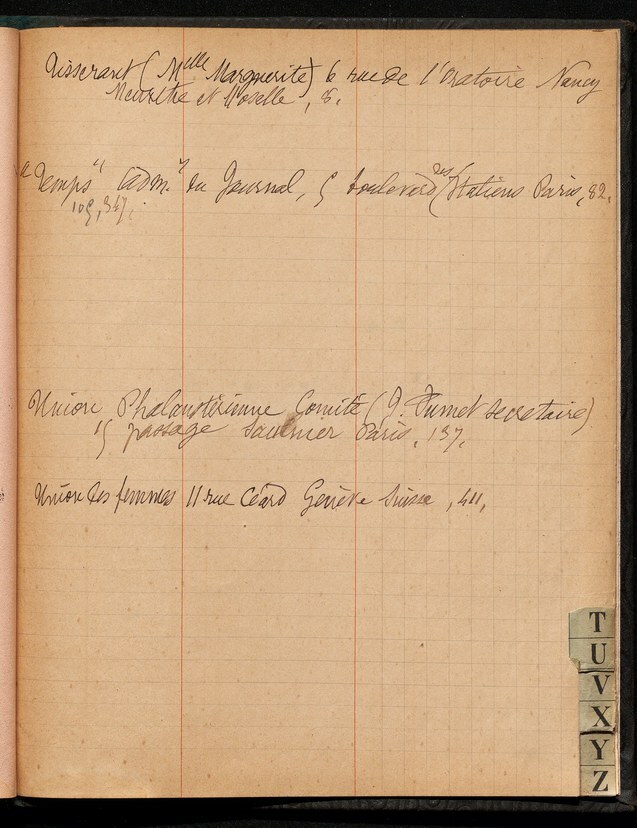 Tisserant (Mlle Marguerite) 6 rue de l'Oratoire Nancy
Meurthe et Moselle, 8.
"Temps" (adm.on du Journal, 5 boulevard des Italiens Paris, 82.
109, 347.
Union Phalanstérienne Comité (J. Dumet secretaire)
15 passage Saulnier Paris, 137.
Union des femmes 11 rue Céard Genève Suisse, 411.
T
U
V
X
Y
Z